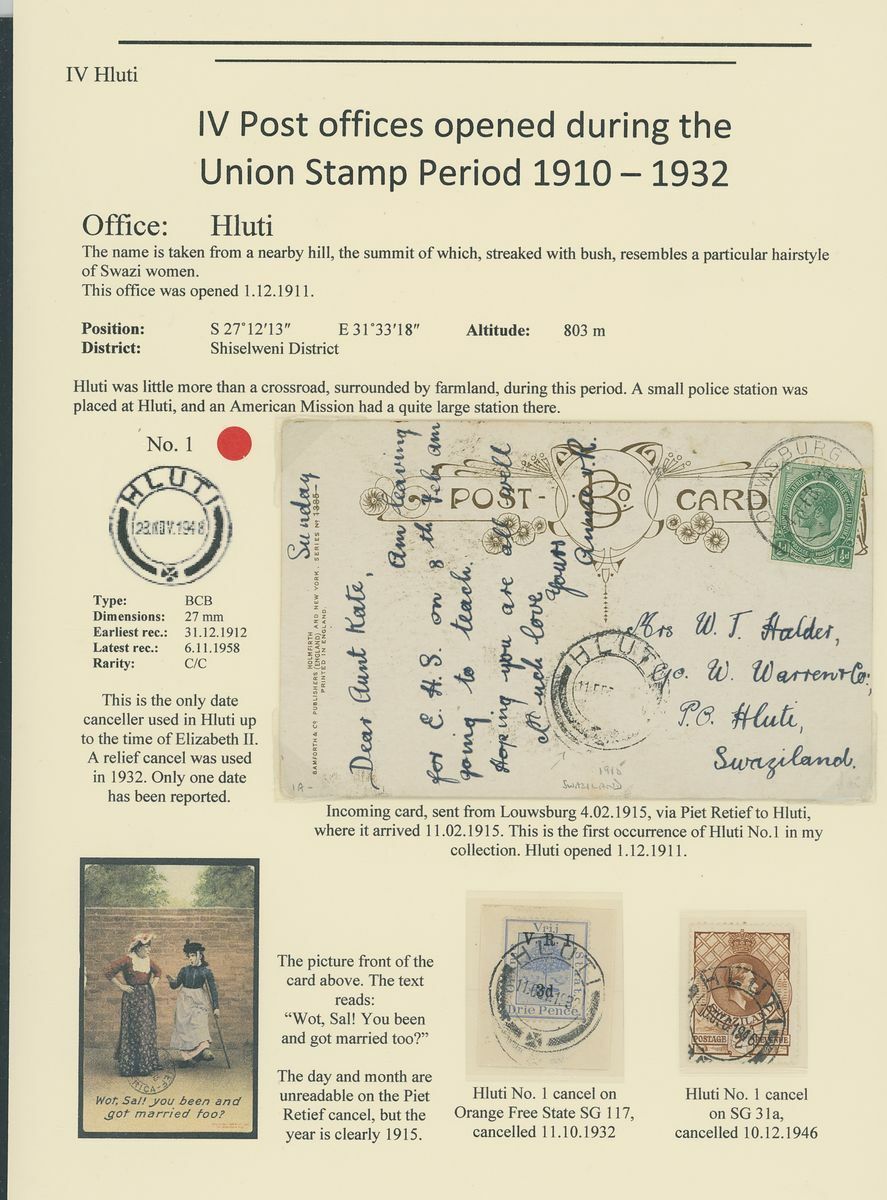 IV Hluti
IV Post offices opened during the
Union Stamp Period 1910 – 1932
Office: Hluti
The name is taken from a nearby hill, the summit of which, streaked with bush, resembles a particular hairstyle
of Swazi women.
This office was opened 1.12.1911.
Position: S 27°12′13″ E 31°33′18″ Altitude: 803 m
District: Shiselweni District
Hluti was little more than a crossroad, surrounded by farmland, during this period. A small police station was
placed at Hluti, and an American Mission had a quite large station there.
No. 1
HLUTI
28.NOV.1948
Type: BCB
Dimensions: 27 mm
Earliest rec.: 31.12.1912
Latest rec.: 6.11.1958
Rarity: C/C
This is the only date
canceller used in Hluti up
to the time of Elizabeth II.
A relief cancel was used
in 1932. Only one date
has been reported.
POST-CARD
B & Co.
BAMFORTH & Co PUBLISHERS (ENGLAND) AND NEW YORK. SERIES No 1385
HOLMFIRTH
PRINTED IN ENGLAND.
Sunday
Dear Aunt Kate,
Am leaving
for E.H.S. on 8th Feb am
going to teach.
Hoping you are all well
Much love
Yours
Mrs W. T. Halder,
c/o. W. Warren & Co;
P.O. Hluti,
Swaziland.
HLUTI
11 FEB
1915
SWAZILAND
1A-
½d
Incoming card, sent from Louwsburg 4.02.1915, via Piet Retief to Hluti,
where it arrived 11.02.1915. This is the first occurrence of Hluti No.1 in my
collection. Hluti opened 1.12.1911.
Wot, Sal! you been and
got married too?
The picture front of the
card above. The text
reads:
“Wot, Sal! You been
and got married too?”
The day and month are
unreadable on the Piet
Retief cancel, but the
year is clearly 1915.
Vrij
V.R.I.
HLUTI
3d
Drie Pence
Hluti No. 1 cancel on
Orange Free State SG 117,
cancelled 11.10.1932
HLUTI
SWAZILAND
POSTAGE REVENUE
Hluti No. 1 cancel
on SG 31a,
cancelled 10.12.1946